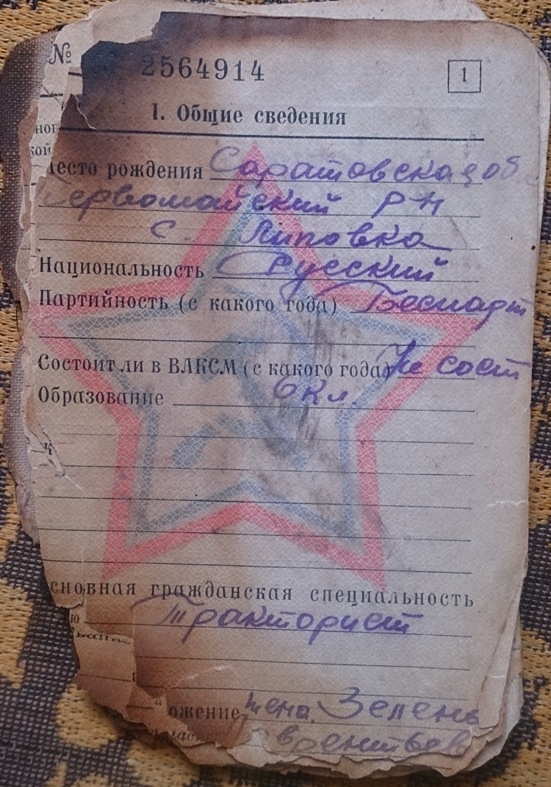 № 2564914 1
I. Общие сведения
Место рождения Саратовская об
Первомайский р-н
с. Липовка
Национальность Русский
Партийность (с какого года) Беспарт
Состоит ли в ВЛКСМ (с какого года) Не сост
Образование 6 кл.
сновная гражданская специальность
Тракторист
ожение жена. Зелень